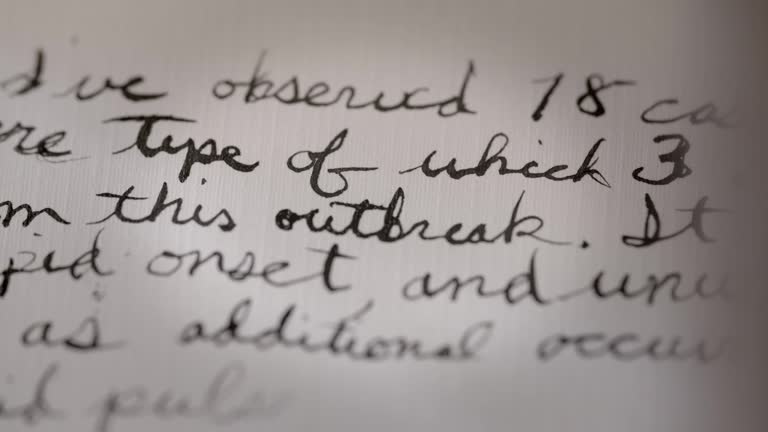 I've observed 18 ca
ere type of which 3
m this outbreak. It
pid onset, and unu
as additional occur
id puls